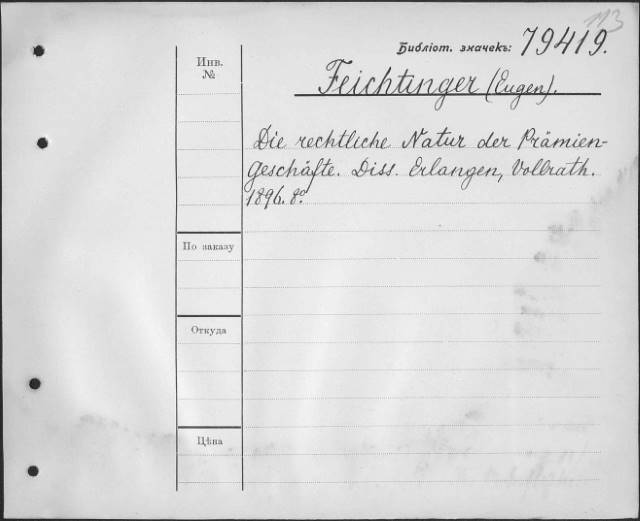 113
Библіот. значекъ: 79419.
Инв.
№
Feichtinger (Eugen).
Die rechtliche Natur der Prämien-
geschäfte. Diss. Erlangen, Vollrath.
1896. 8°.
По заказу
Откуда
Цѣна